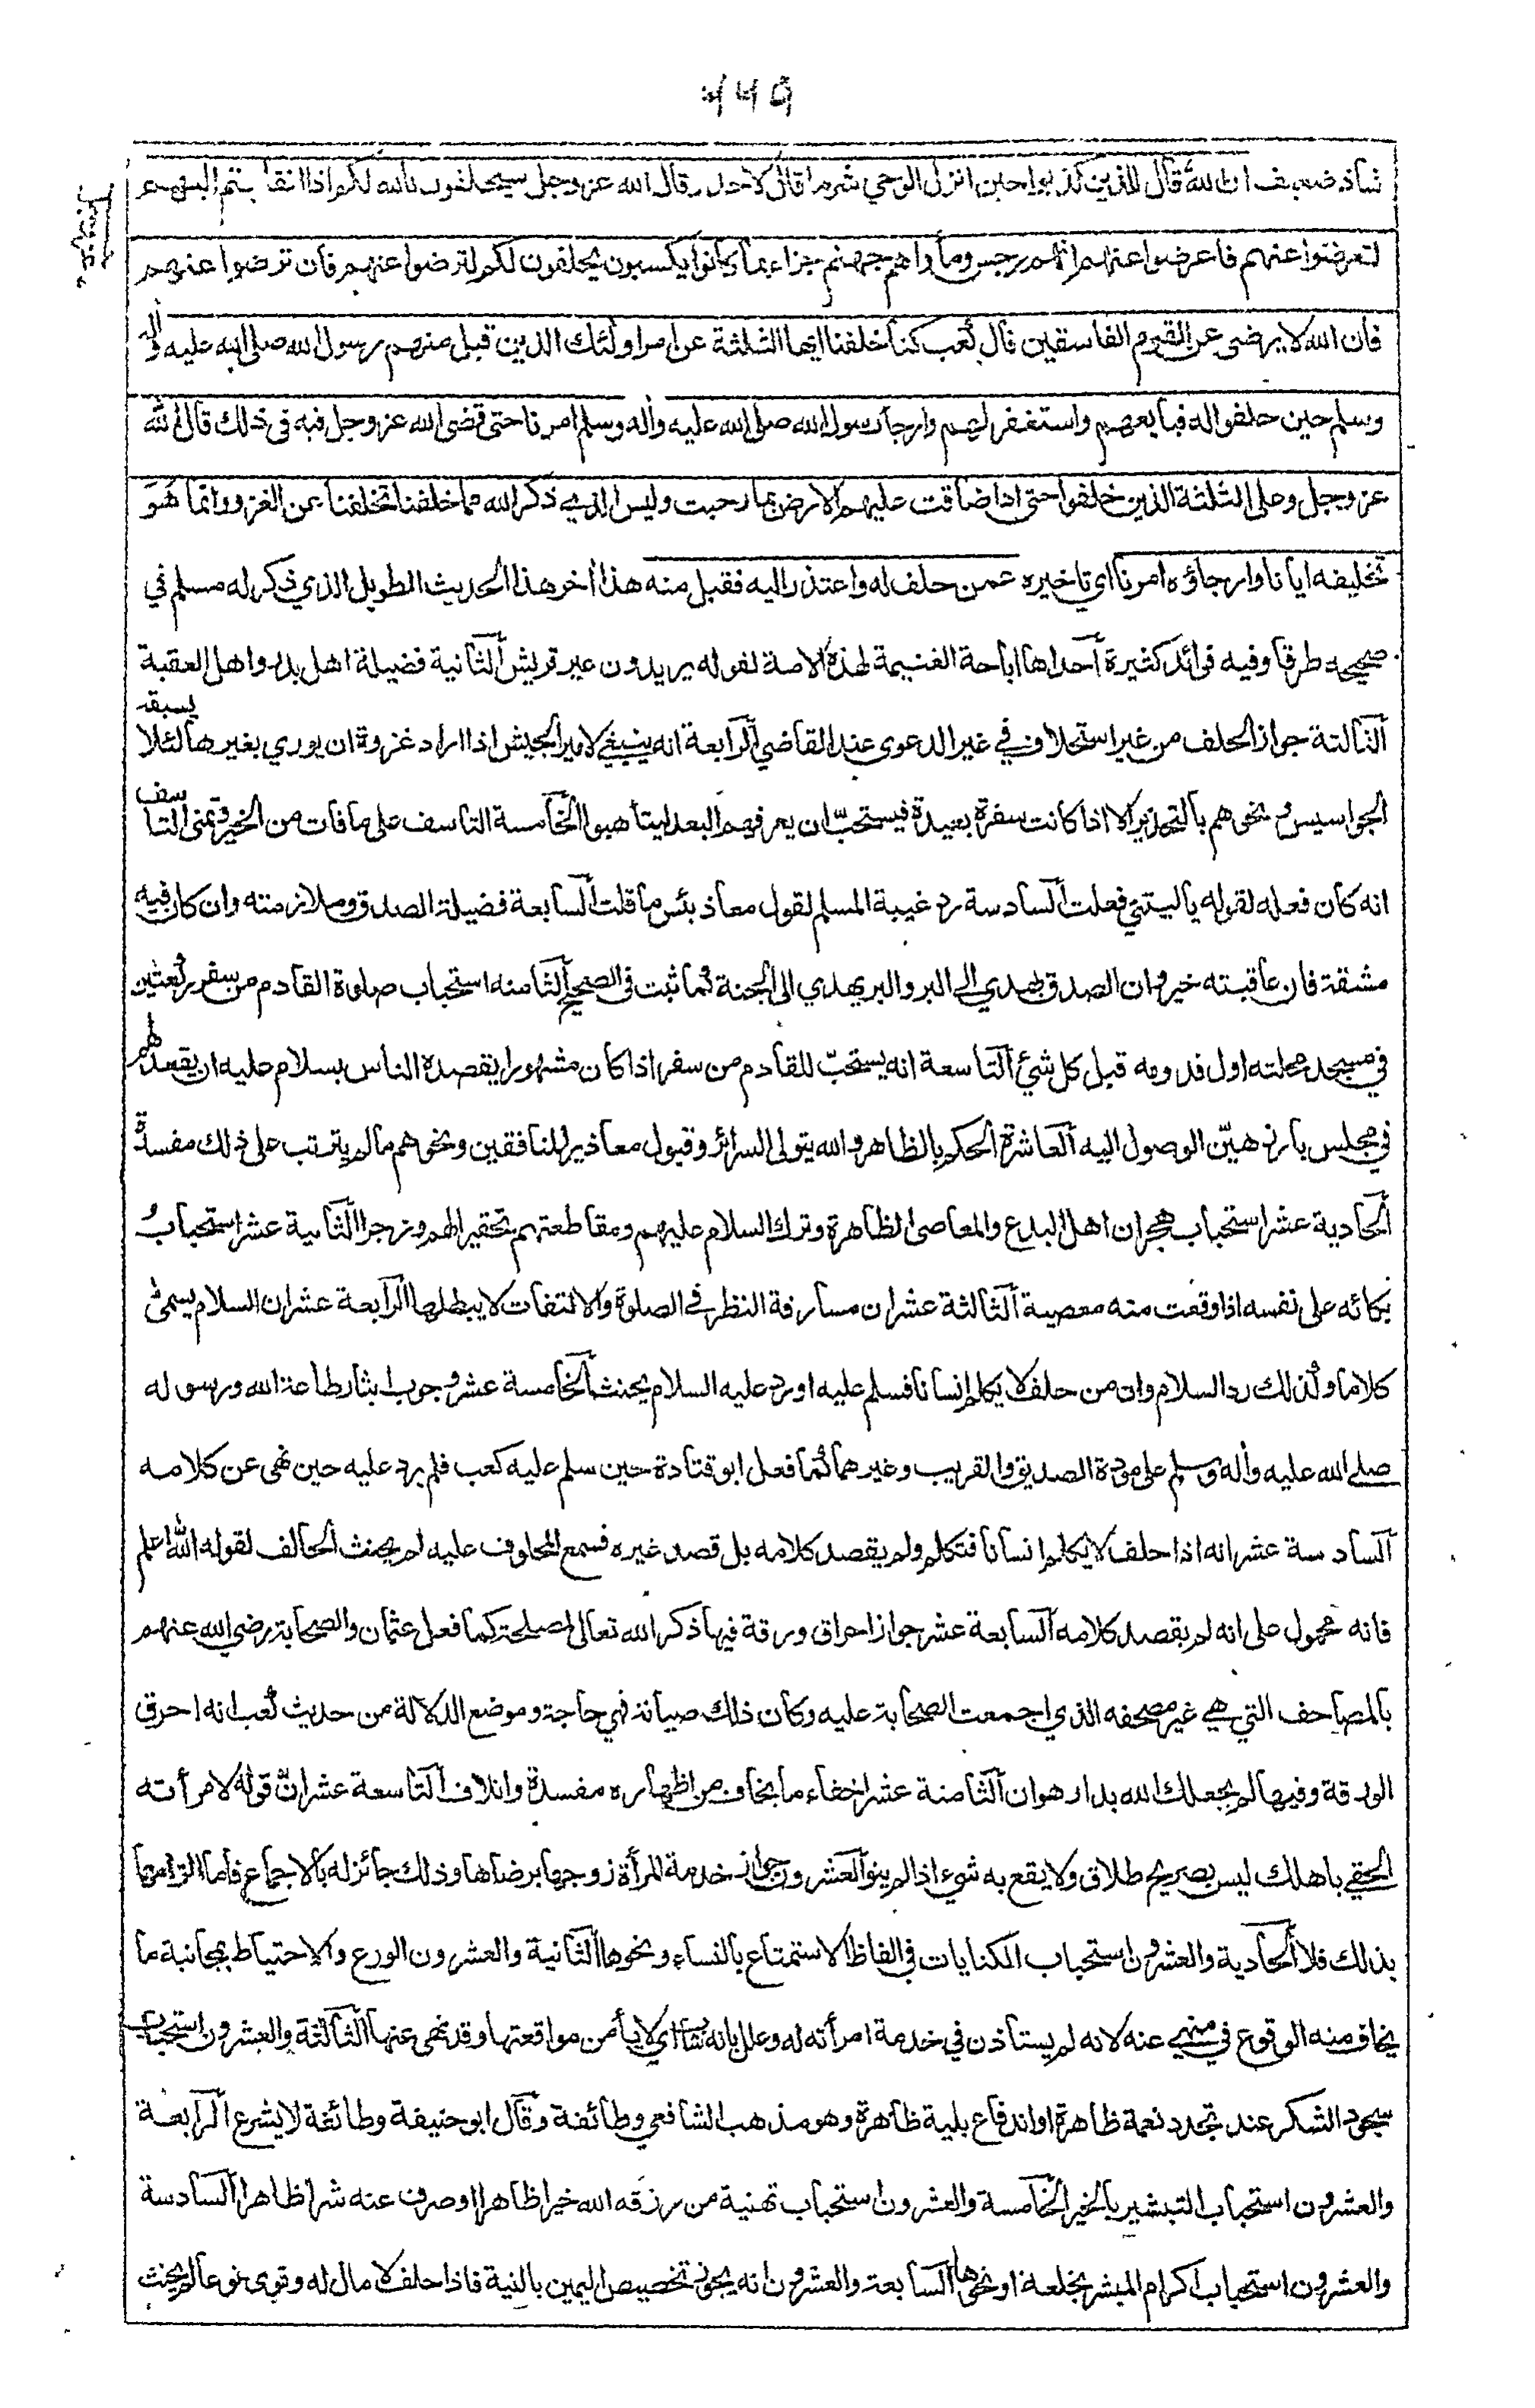 شاذ ضعيف ان الله قال للذين كذبوا حين انزل الوحي شر ما قال لاحد وقال الله عز وجل سيحلفون بالله لكم اذا انقلبتم اليهم
لتعرضوا عنهم فاعرضوا عنهم انهم رجس وماواهم جهنم جزاء بما كانوا يكسبون يحلفون لكم لترضوا عنهم فان ترضوا عنهم
فان الله لا يرضى عن القوم الفاسقين قال كعب كنا خلفنا ايها الثلثة عن امر اولئك الذين قبل منهم رسول الله صلى الله عليه واله
وسلم حين حلفوا له فبايعهم واستغفر لهم وارجأ رسول الله صلى الله عليه واله وسلم امرنا حتى قضى الله عز وجل فيه في ذلك قال الله
عز وجل وعلى الثلثة الذين خلفوا حتى اذا ضاقت عليهم الارض بما رحبت وليس الذي ذكر الله مما خلفنا تخلفنا عن الغزو وانما هو
تخليفه ايانا وارجاؤه امرنا اي تاخيره عمن حلف له واعتذر اليه فقبل منه هذا اخر هذا الحديث الطويل الذي ذكر له مسلم في
صحيحه طرقا وفيه فوائد كثيرة احداها اباحة الغنيمة لهذه الامة لقوله يريدون عير قريش الثانية فضيلة اهل بدر واهل العقبة
الثالثة جواز الحلف من غير استحلاف في غير الدعوى عند القاضي الرابعة انه ينبغي لامير الجيش اذا اراد غزوة ان يوري بغيرها لئلا يسبقه
الجواسيس ونحوهم بالتحذير الا اذا كانت سفرة بعيدة فيستحب ان يعرفهم البعد ليتاهبوا الخامسة التاسف على ما فات من الخير وتمنى المتاسف
انه كان فعله لقوله ياليتني فعلت السادسة رد غيبة المسلم لقول معاذ بئس ما قلت السابعة فضيلة الصدق وملازمته وان كان فيه
مشقة فان عاقبته خير وان الصدق يهدي الى البر والبر يهدي الى الجنة كما ثبت في الصحيح الثامنه استحباب صلوة القادم من سفر ركعتين
في مسجد محلته اول قدومه قبل كل شئ التاسعة انه يستحب للقادم من سفر اذا كان مشهورا يقصده الناس بسلام عليه ان يقعد لهم
في مجلس بارز هين الوصول اليه العاشرة الحكم بالظاهر والله يتولى السرائر وقبول معاذير المنافقين ونحوهم ما لم يترتب على ذلك مفسدة
الحادية عشر استحباب هجران اهل البدع والمعاصى الظاهرة وترك السلام عليهم ومقاطعتهم تحقيرا لهم وزجرا الثانية عشر استحباب
بكائه على نفسه اذا وقعت منه معصية الثالثة عشر ان مسارقة النظر في الصلوة والالتفات لا يبطلها الرابعة عشر ان السلام يسمى
كلاما وكذلك رد السلام وان من حلف لا يكلم انسانا فسلم عليه او رد عليه السلام يحنث الخامسة عشر وجوب ايثار طاعة الله ورسوله
صلى الله عليه واله وسلم على مودة الصديق والقريب وغيرهما كما فعل ابو قتادة حين سلم عليه كعب فلم يرد عليه حين نهى عن كلامه
السادسة عشر انه اذا حلف لا يكلم انسانا فتكلم ولم يقصد كلامه بل قصد غيره فسمع المحلوف عليه لم يحنث الحالف لقوله الله اعلم
فانه محمول على انه لم يقصد كلامه السابعة عشر جواز احراق ورقة فيها ذكر الله تعالى لمصلحة كما فعل عثمان والصحابة رضي الله عنهم
بالمصاحف التي هي غير مصحفه الذي اجمعت الصحابة عليه وكان ذلك صيانة فهي حاجة وموضع الدلالة من حديث كعب انه احرق
الورقة وفيها لم يجعلك الله بدار هوان الثامنة عشر اخفاء ما يخاف من اظهاره مفسدة واتلاف التاسعة عشر ان قوله لامرأته
الحقي باهلك ليس بصريح طلاق ولا يقع به شيء اذا لم ينو العشرون جواز خدمة المرأة زوجها برضاها وذلك جائز له بالاجماع فاما الزامها
بذلك فلا الحادية والعشرون استحباب الكنايات في الفاظ الاستمتاع بالنساء ونحوها الثانية والعشرون الورع والاحتياط بمجانبة ما
يخاف منه الوقوع في منهي عنه لانه لم يستاذن في خدمة امرأته له وعلل بانه شاب اي لا يأمن مواقعتها وقد نهى عنها الثالثة والعشرون استحباب
سجود الشكر عند تجدد نعمة ظاهرة او اندفاع بلية ظاهرة وهو مذهب الشافعي وطائفة وقال ابو حنيفة وطائفة لا يشرع الرابعة
والعشرون استحباب التبشير بالخير الخامسة والعشرون استحباب تهنية من رزقه الله خيرا ظاهرا او صرف عنه شرا ظاهرا السادسة
والعشرون استحباب اكرام المبشر بخلعة او نحوها السابعة والعشرون انه يجوز تخصيص اليمين بالنية فاذا حلف لا مال له ونوى نوعا لم يحنث